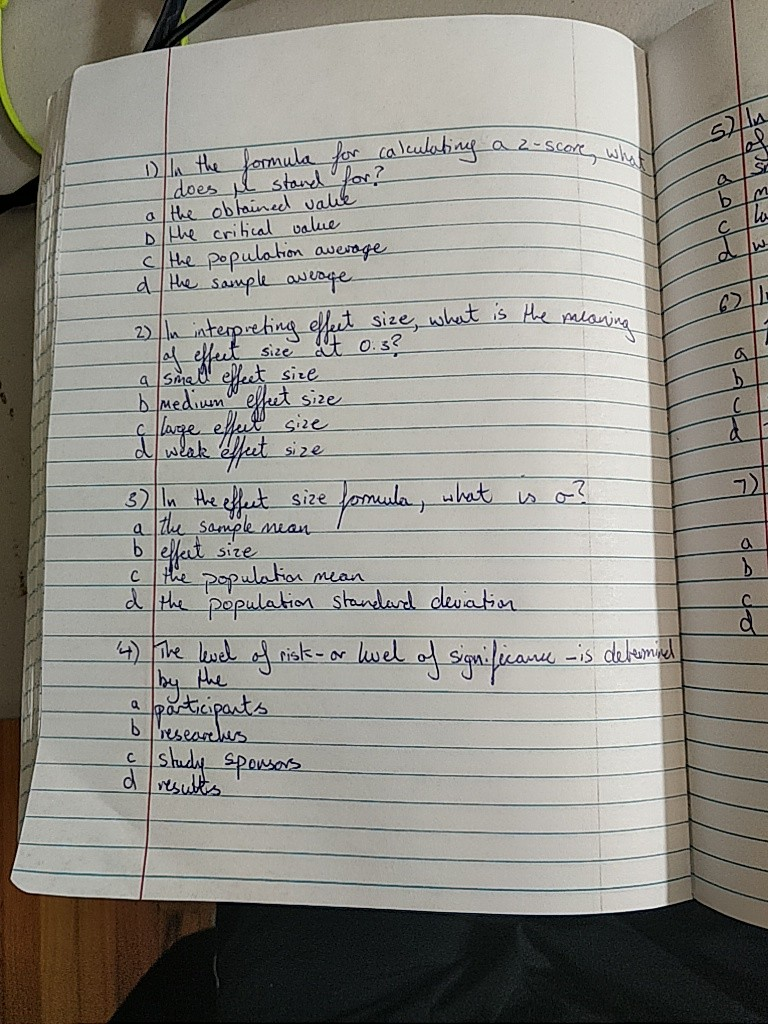 1) In the formula for calculating a z-score, what
does μ stand for?
a the obtained value
b the critical value
c the population average
d the sample average
2) In interpreting effect size, what is the meaning
of effect size at 0.3?
a small effect size
b medium effect size
c large effect size
d weak effect size
3) In the effect size formula, what is σ?
a the sample mean
b effect size
c the population mean
d the population standard deviation
4) The level of risk - or level of significance - is determined
by the
a participants
b researchers
c study sponsors
d results
5) In
of
a
b
c
d
6)
a
b
c
d
7)
a
b
c
d